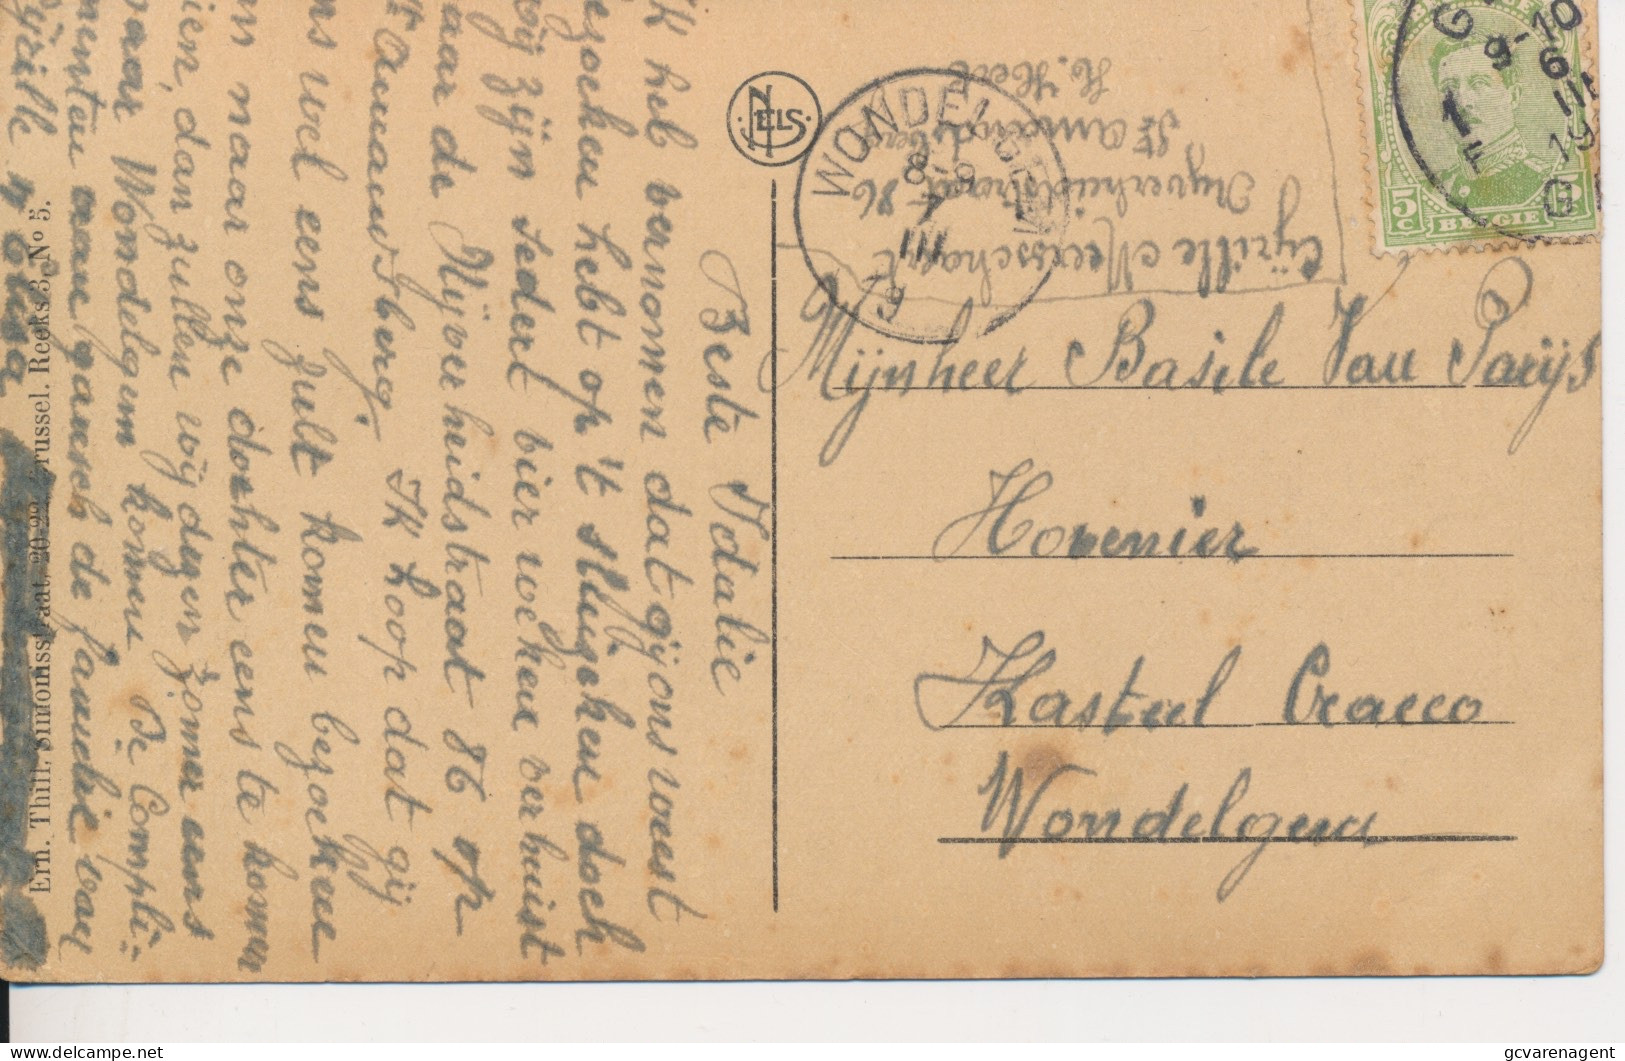 Beste Odalie
Ik heb vernomen dat gij ons woest
bezoeken hebt op 't slugeken doch
wij zijn sedert vier weken verhuist
naar de Nijverheidstraat 86 op
St Amandsberg. Ik hoop dat gij
ons wel eens zult komen bezoeken
om naar onze dochter eens te komen
zien, dan zullen wij dezen zomer eens
naar Wondelgem komen De Compli-
menten van gansch de familie van
Cyrille
Ern. Thill, Simonisstraat, 20-22 Brussel. Reeks 3, No 5.
NELS
WONDELGEM
8-9
7
III
19
GENT
1
10
6
III
19
BELGIE
5c
Cyrille Meersschaert
Nijverheidstraat 86
St Amandsberg
Mijnheer Basile Van Parijs
Hovenier
Kasteel Cracco
Wondelgem
gcvarenagent